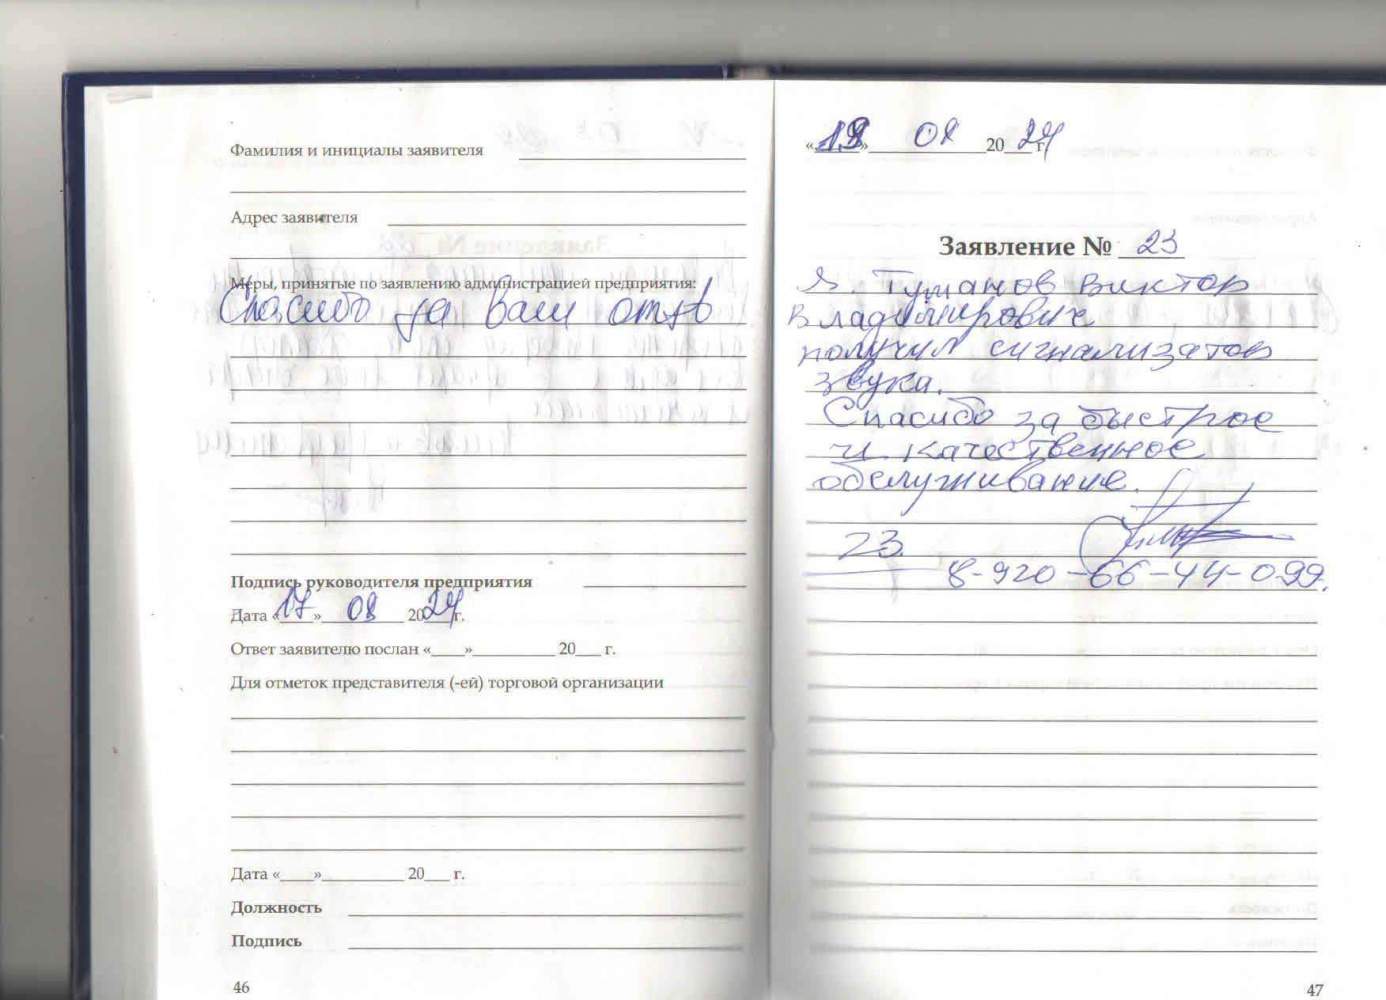 Фамилия и инициалы заявителя
Адрес заявителя
Меры, принятые по заявлению администрацией предприятия:
Спасибо за ваш отзыв
Подпись руководителя предприятия
Дата «17» 08 2024г.
Ответ заявителю послан «____»__________ 20___ г.
Для отметок представителя (-ей) торговой организации
Дата «____»__________ 20___ г.
Должность
Подпись
46
« » 08 2024 г.
Заявление № 23
Я. Туманов Виктор
Владимирович
получил сигнализатов
звука.
Спасибо за быстрое
и качественное
обслуживание.
23.
8-920-66-44-099.
47